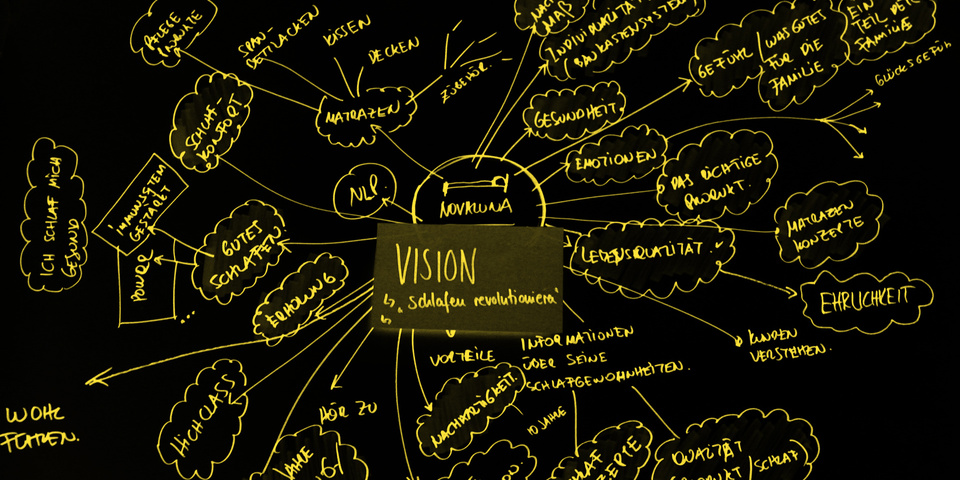 SPAN-
BETTLACKEN
KISSEN
DECKEN
ZUBEHÖR.
MATRAZEN
NACH
MAß
INDIVIDUALITÄT
BAUKASTENSYSTEM
GEFÜHL /
WAS GUTES
FÜR DIE
FAMILIE
EIN
TEIL DER
FAMILIE
GLÜCKSGEFÜHL
GESUNDHEIT
EMOTIONEN
DAS RICHTIGE
PRODUKT.
MATRAZEN
KONZEPTE
LEBENSQUALITÄT.
EHRLICHKEIT
KUNDEN
VERSTEHEN.
SCHLAF-
KOMFORT
NLP.
NOVALUNA
VISION
↳ „schlafen revolutionieren"
↳
ICH SCHLAF MICH
GESUND
IMMUNSYSTEM
GESTÄRKT
POWER
...
GUTES
SCHLAFEN
ERHOLUNG
WOHL
FÜHLEN.
HIGHCLASS
HÖR ZU
VORTEILE
NACHHALTIGKEIT.
10 JAHRE
INFORMATIONEN
ÜBER SEINE
SCHLAFGEWOHNHEITEN.
QUALITÄT
/ SCHLAF